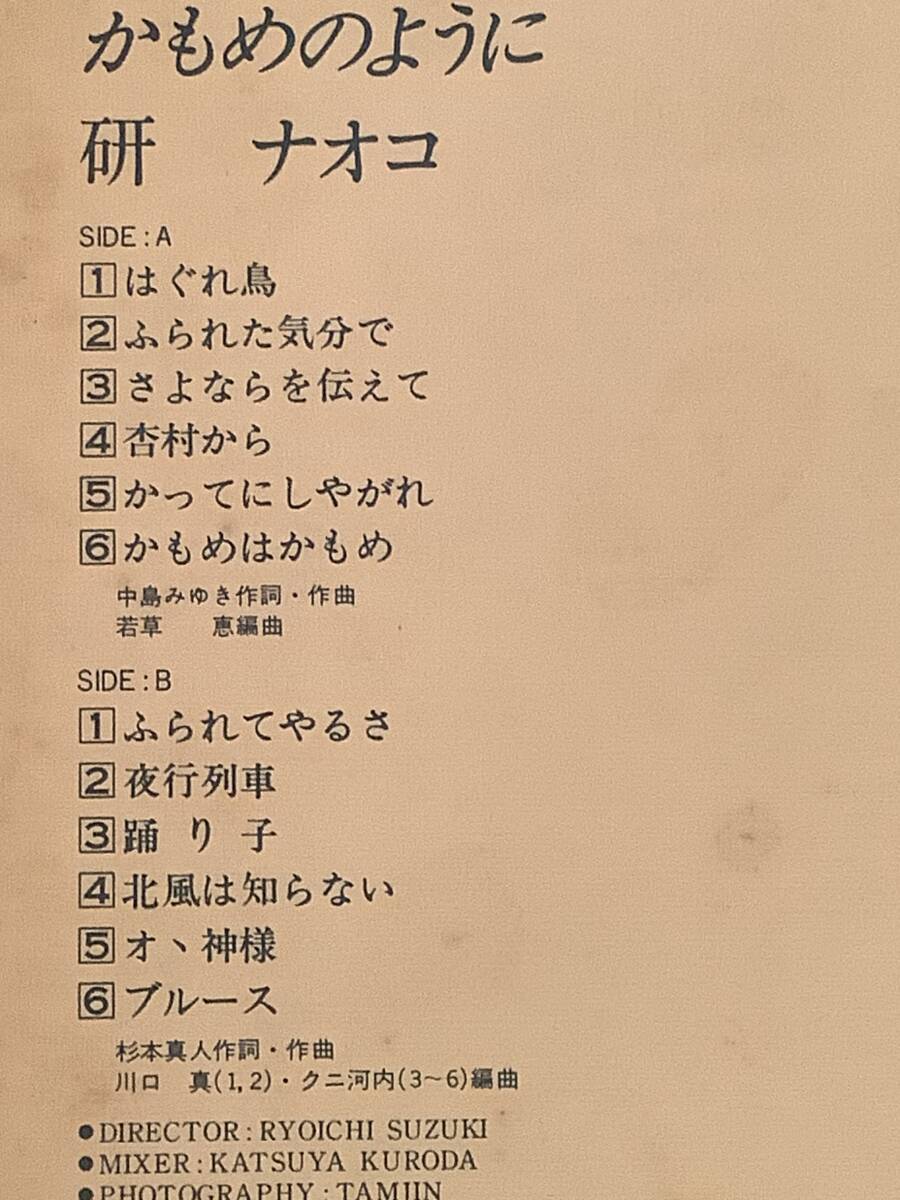 かもめのように
研 ナオコ
SIDE:A
1 はぐれ鳥
2 ふられた気分で
3 さよならを伝えて
4 杏村から
5 かってにしやがれ
6 かもめはかもめ
中島みゆき作詞・作曲
若草 恵編曲
SIDE:B
1 ふられてやるさ
2 夜行列車
3 踊り子
4 北風は知らない
5 オヽ神様
6 ブルース
杉本真人作詞・作曲
川口 真(1,2)・クニ河内(3~6)編曲
●DIRECTOR:RYOICHI SUZUKI
●MIXER:KATSUYA KURODA
●PHOTOGRAPHY:TAMJIN